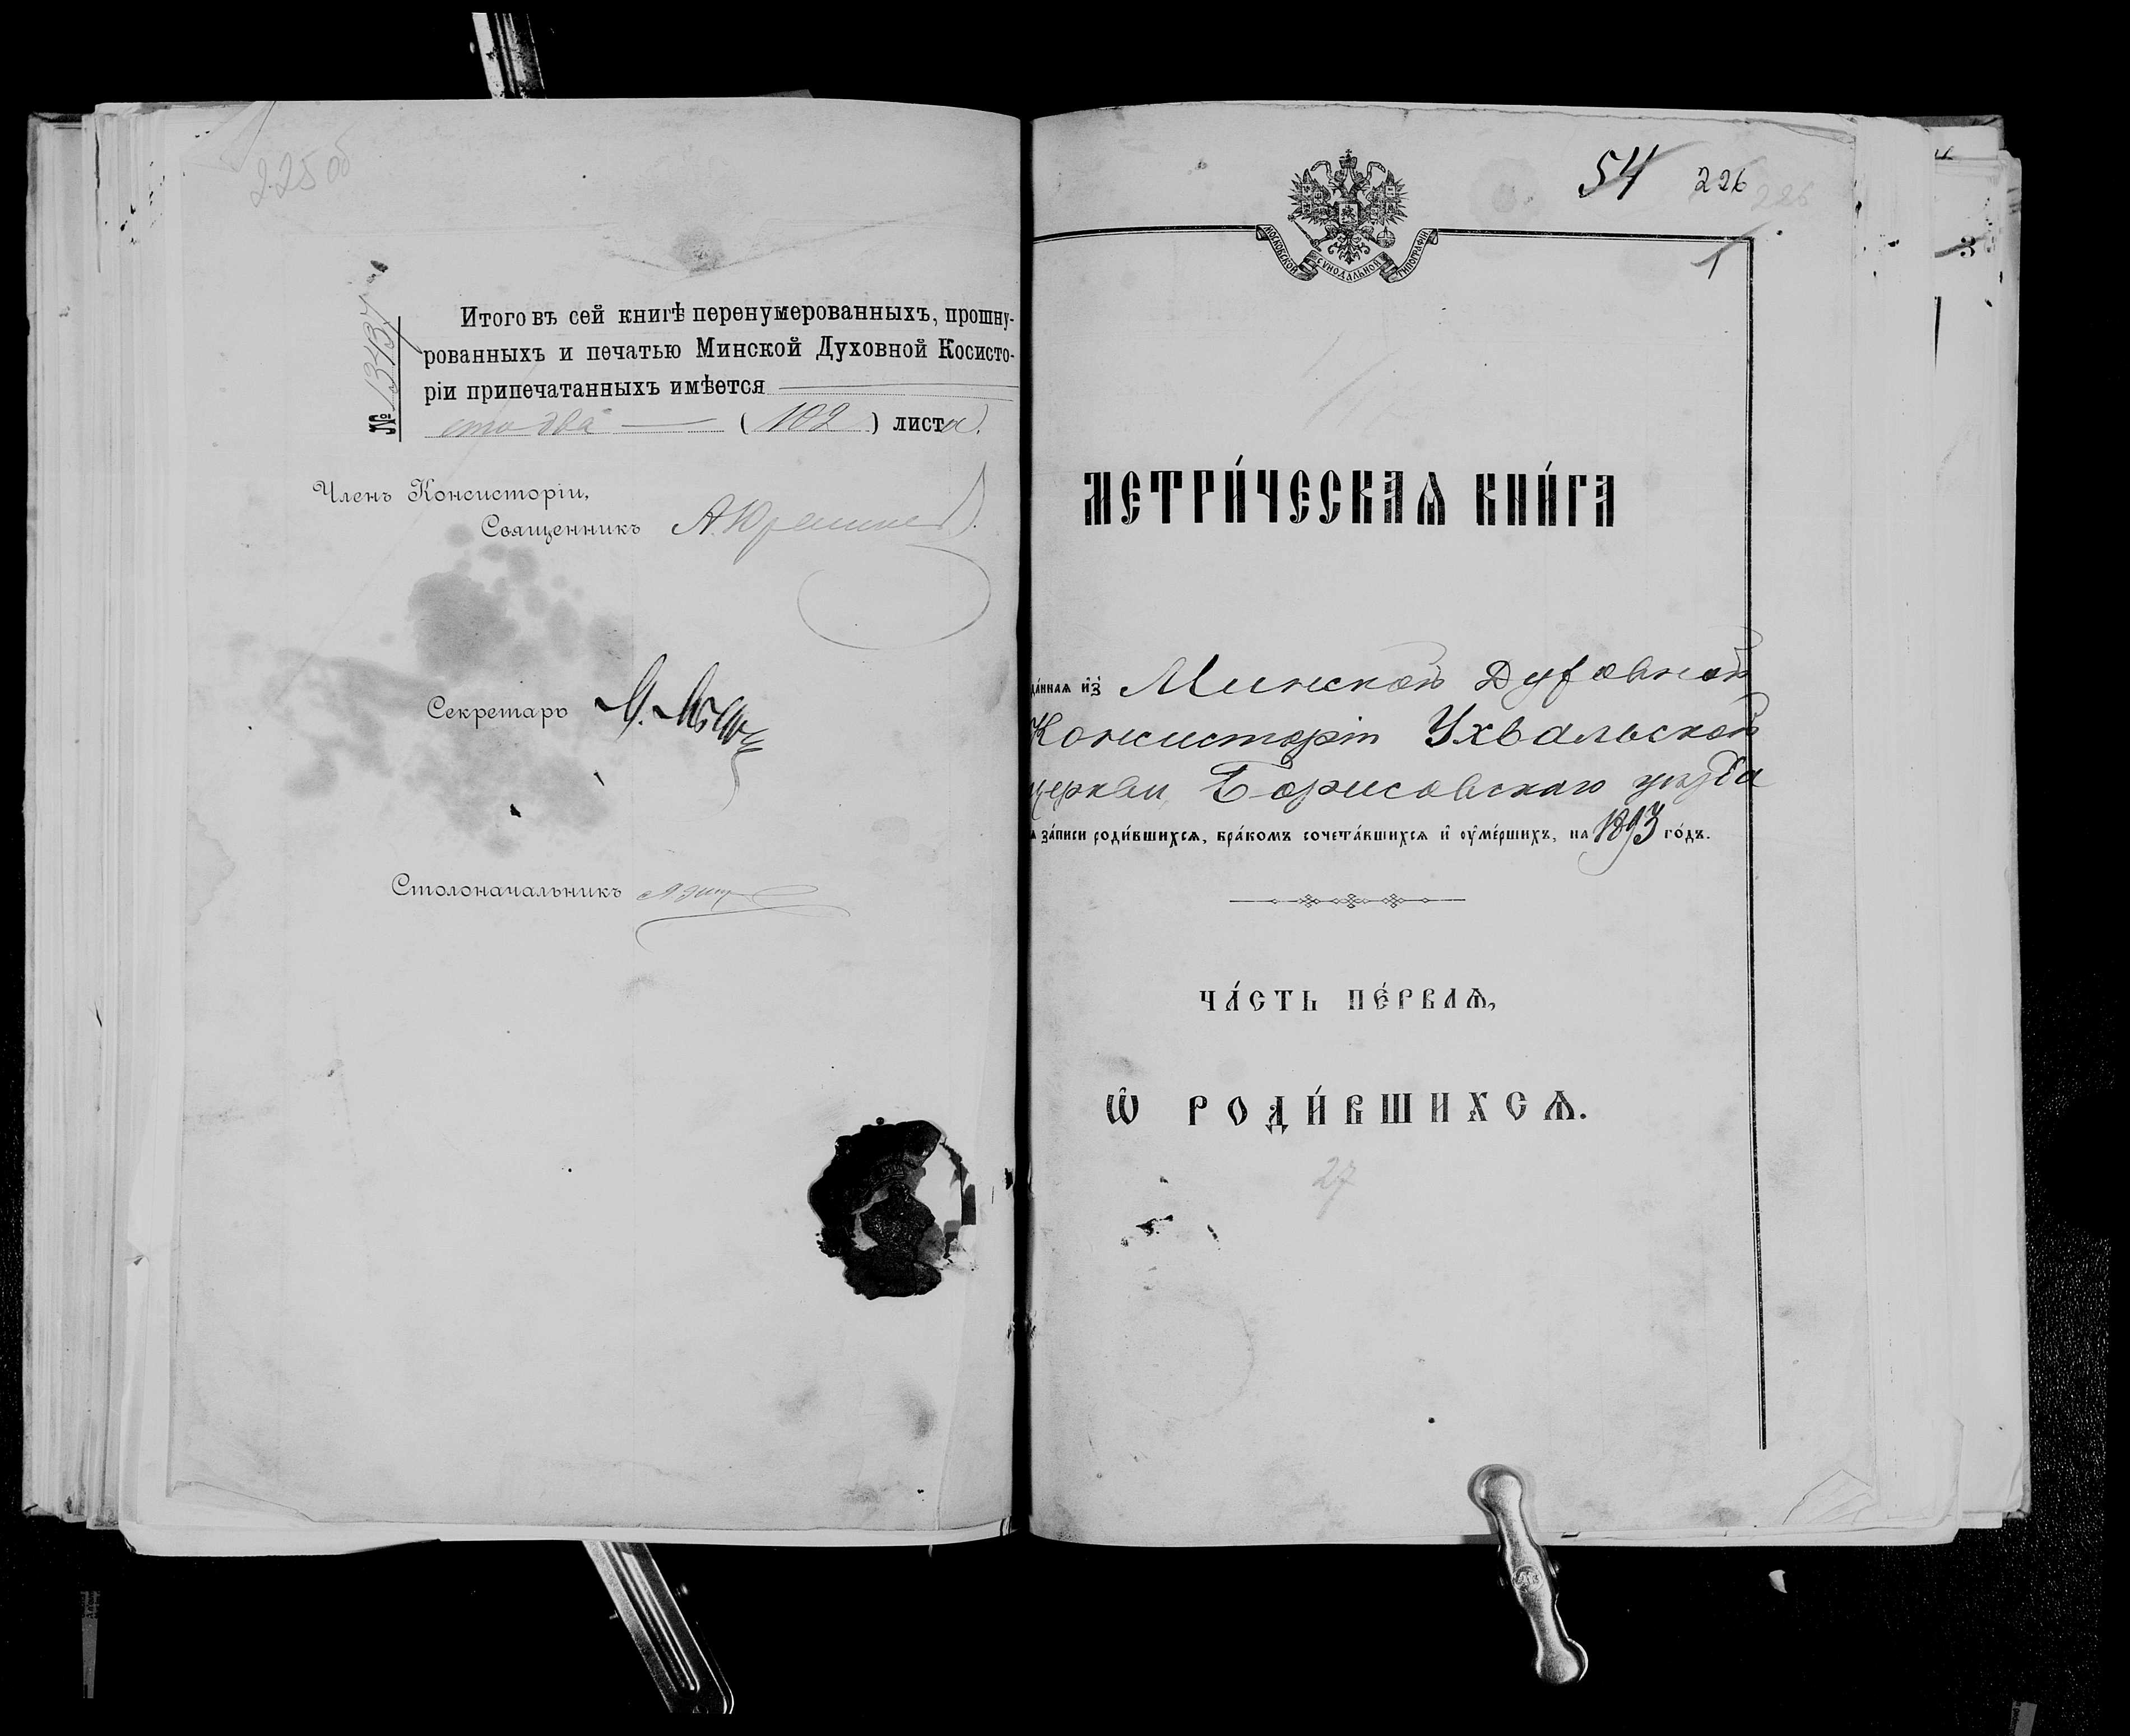 225 об
№ 13437
Итого въ сей книгѣ перенумерованныхъ, прошну-
рованныхъ и печатью Минской Духовной Косисто-
ріи припечатанныхъ имѣется
сто два ( 102 ) листа.
Членъ Консисторіи,
Священникъ
Секретарь
Столоначальникъ
54 226 226
МОСКОВСКОЙ СУНОДАЛЬНОЙ ТИПОГРАФІИ
1
МЕТРИ́ЧЕСКАѦ КНИ́ГА
да́ннаѧ и҆з̾ Минской Духовной
Консисторіи Ухвальской
церкви, Борисовскаго уѣзда
ѧ за́писи роди́вшихсѧ, бра́комъ сочета́вшихсѧ и҆ оу҆ме́ршихъ, на 1893 го́дъ.
ЧА́СТЬ ПЕ́РВАѦ,
Ѡ҆ РОДИ́ВШИХСѦ.
27